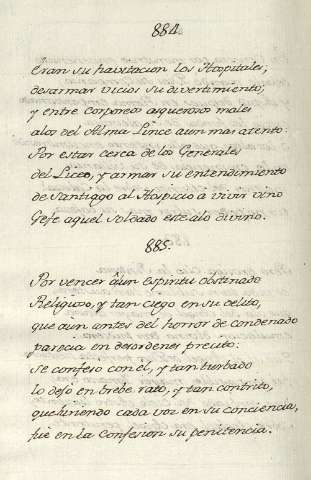 884.
Eran su havitacion los Hospitales,
desarmar vicios su divertimiento;
y entre corporeos asquerosos males
alos del Alma Lince aun mas atento.
Por estar cerca de los Generales
del Liceo, y armar su entendimiento
de Santiago al Hospicio á vivir vino
Gefe aquel Soldado este alo divino.
885.
Por vencer áun Espiritu obstinado
Religioso, y tan ciego en su delito,
que aun antes del horror de condenado
parecia en desordenes precito:
se confeso con él, y tan turbado
lo dejo en brebe rato, y tan contrito,
que huriendo cada voz en su conciencia,
fue en la Confesion su penitencia.